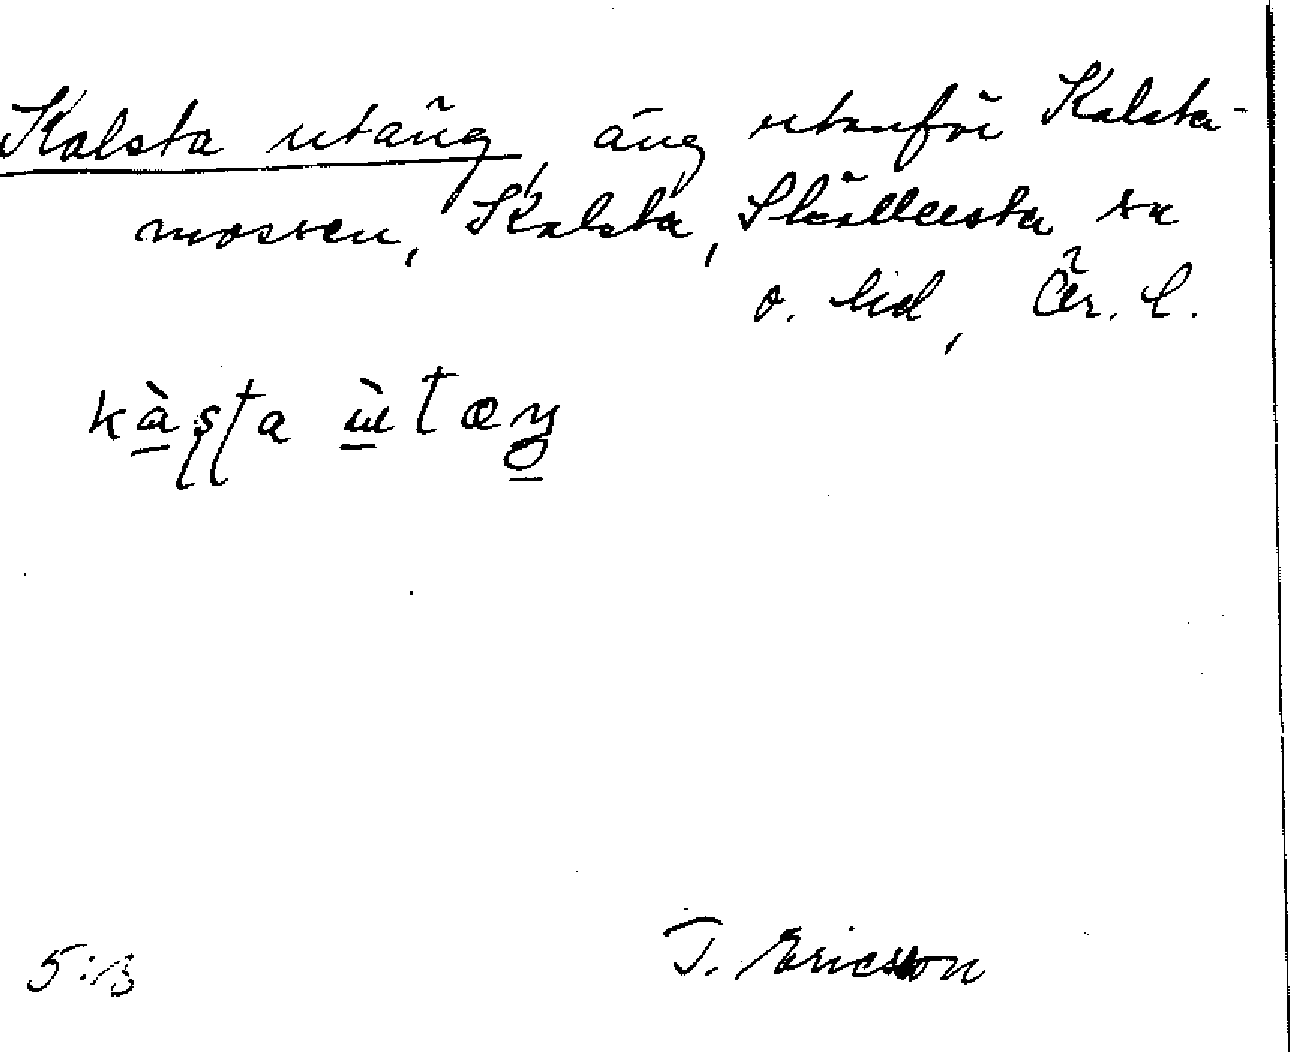 Kalsta utäng, äng utanför Kalsta-
mossen, Kalsta, Sköllersta sn
o. hd, Ör. l.
kàṣṭa ɯ̀tæŋ
5:B
T. Ericsson